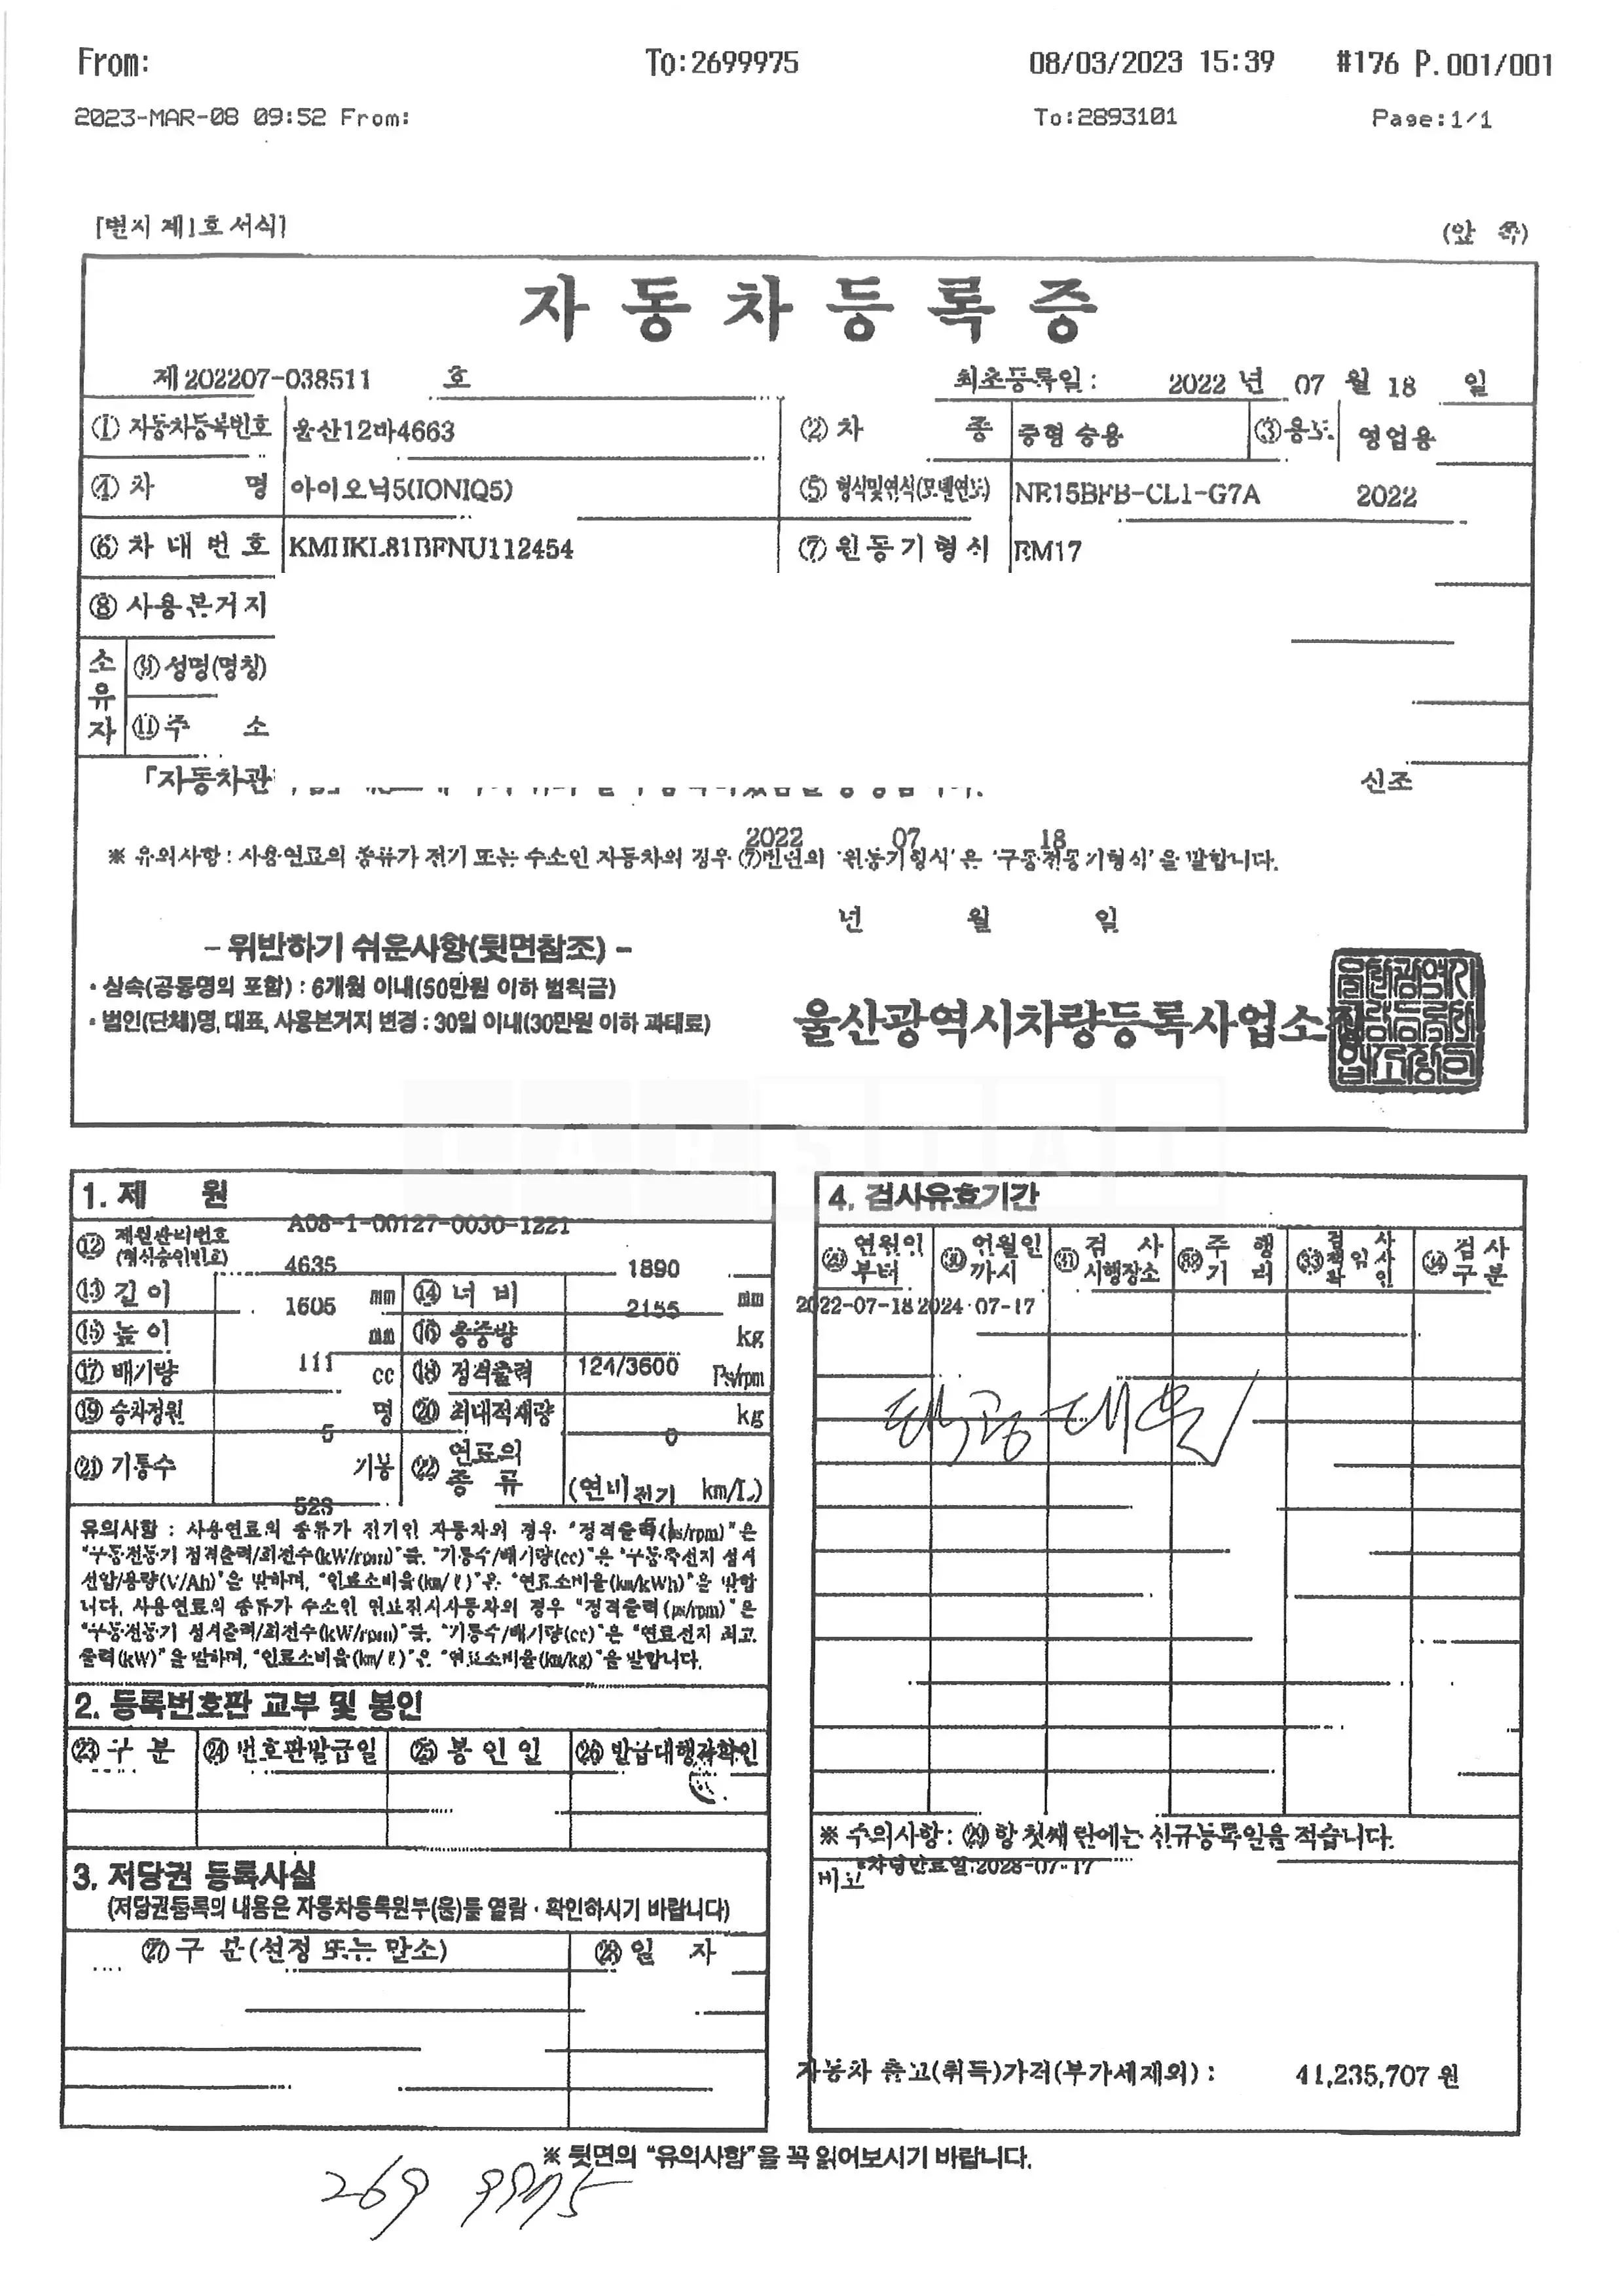 From: To:2699975 08/03/2023 15:39 #176 P.001/001
2023-MAR-08 09:52 From: To:2893101 Page:1/1
[별지 제1호 서식] (앞 쪽)
자 동 차 등 록 증
제 202207-038511 호 최초등록일 : 2022 년 07 월 18 일
① 자동차등록번호 울산12바4663 ② 차 종 중형 승용 ③용도 영업용
④ 차 명 아이오닉5(IONIQ5) ⑤ 형식및연식(모델연도) NE15BFB-CL1-G7A 2022
⑥ 차 대 번 호 ⑦ 원 동 기 형 식 EM17
⑧ 사 용 본 거 지
소유자 ⑨ 성명(명칭)
주 소
「자동차관 신조
2022 07 18
※ 유의사항 : 사용연료의 종류가 전기 또는 수소인 자동차의 경우 ⑦란의 '원동기형식'은 '구동전동기형식'을 말합니다.
년 월 일
- 위반하기 쉬운사항(뒷면참조) -
· 상속(공동명의 포함) : 6개월 이내(50만원 이하 범칙금)
· 법인(단체)명, 대표, 사용본거지 변경 : 30일 이내(30만원 이하 과태료)
울산광역시차량등록사업소
1. 제 원
⑫ 제원관리번호 (형식승인번호) A08-1-00127-0030-1221
⑬ 길 이 4635 mm ⑭ 너 비 1890 mm
⑮ 높 이 1605 mm ⑯ 총중량 2155 kg
⑰ 배기량 111 cc ⑱ 정격출력 124/3600 Ps/rpm
⑲ 승차정원 5 명 ⑳ 최대적재량 0 kg
㉑ 기통수 523 기통 ㉒ 연료의 종 류 전기 (연비 km/L)
유의사항 : 사용연료의 종류가 전기인 자동차의 경우 "정격출력(ps/rpm)"은
"구동전동기 정격출력/회전수(kW/rpm)"를, "기통수/배기량(cc)"은 "구동축전지 정격
전압/용량(V/Ah)"을 말하며, "연료소비율(km/ℓ)"은 "연료소비율(km/kWh)"을 말합
니다. 사용연료의 종류가 수소인 연료전지자동차의 경우 "정격출력(ps/rpm)"은
"구동전동기 정격출력/회전수(kW/rpm)"를, "기통수/배기량(cc)"은 "연료전지 최고
출력(kW)"을 말하며, "연료소비율(km/ℓ)"은 "연료소비율(km/kg)"을 말합니다.
2. 등록번호판 교부 및 봉인
㉓ 구 분 ㉔ 번호판발급일 ㉕ 봉 인 일 ㉖ 발급대행자확인
3. 저당권 등록사실
(저당권등록의 내용은 자동차등록원부(을)를 열람 · 확인하시기 바랍니다)
㉗ 구 분(설정 또는 말소) ㉘ 일 자
4. 검사유효기간
㉙ 연월일 부터 ㉚ 연월일 까지 ㉛ 검 사 시행장소 ㉜ 주 행 거 리 ㉝ 검사 책임자 확인 ㉞ 검 사 구 분
2022-07-18 2024-07-17
※ 주의사항 : ㉙ 항 첫째 란에는 신규등록일을 적습니다.
비고 *차령만료일:2028-07-17
자동차 출고(취득)가격(부가세제외) : 41,235,707 원
※ 뒷면의 "유의사항"을 꼭 읽어보시기 바랍니다.
269 9975